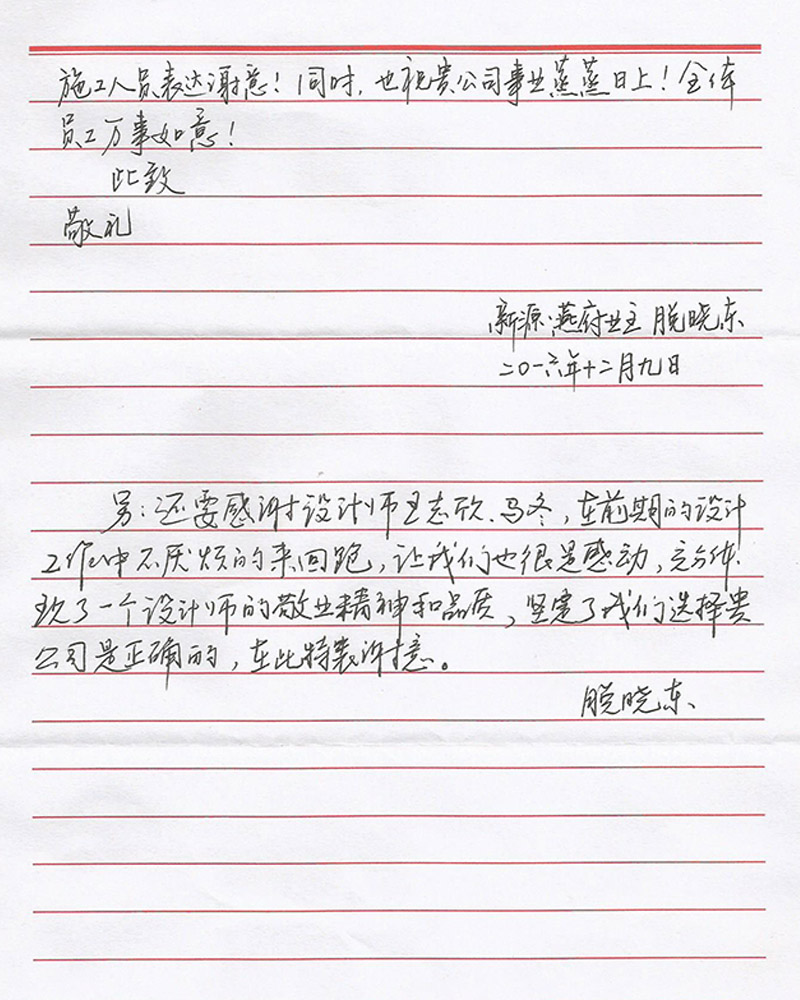 施工人员表达谢意！同时，也祝贵公司事业蒸蒸日上！全体
员工万事如意！
此致
敬礼
新源·燕府业主 脱晓东
二〇一六年十二月九日
另：还要感谢设计师王志欣、马冬，在前期的设计
工作中不厌烦的来回跑，让我们也很是感动，充分体
现了一个设计师的敬业精神和品质，坚定了我们选择贵
公司是正确的，在此特表谢意。
脱晓东